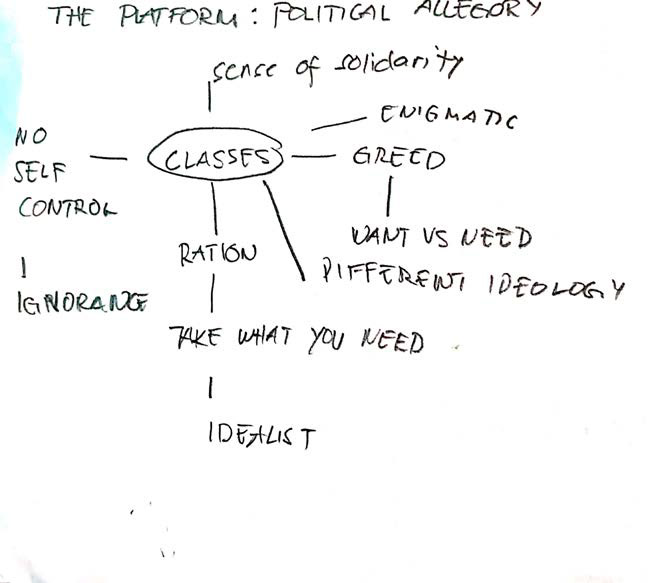 THE PLATFORM: POLITICAL ALLEGORY
sense of solidarity
ENIGMATIC
NO
SELF
CONTROL
CLASSES
GREED
WANT VS NEED
RATION
DIFFERENT IDEOLOGY
IGNORANCE
TAKE WHAT YOU NEED
IDEALIST